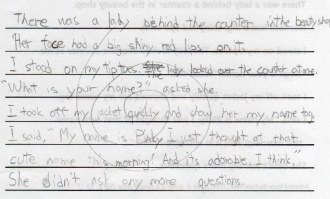 There was a lady behind the counter in the beauty shop
Her face had a big shiny red lips on it.
I stood on my tiptoes. The lady looked over the counter at me.
"What is your name?" asked she.
I took off my jacket quickly and show her my name tag
I said, "My name is Pinky I just thought of that
cute name this morning! And its adorable, I think."
She didn't ask any more questions.